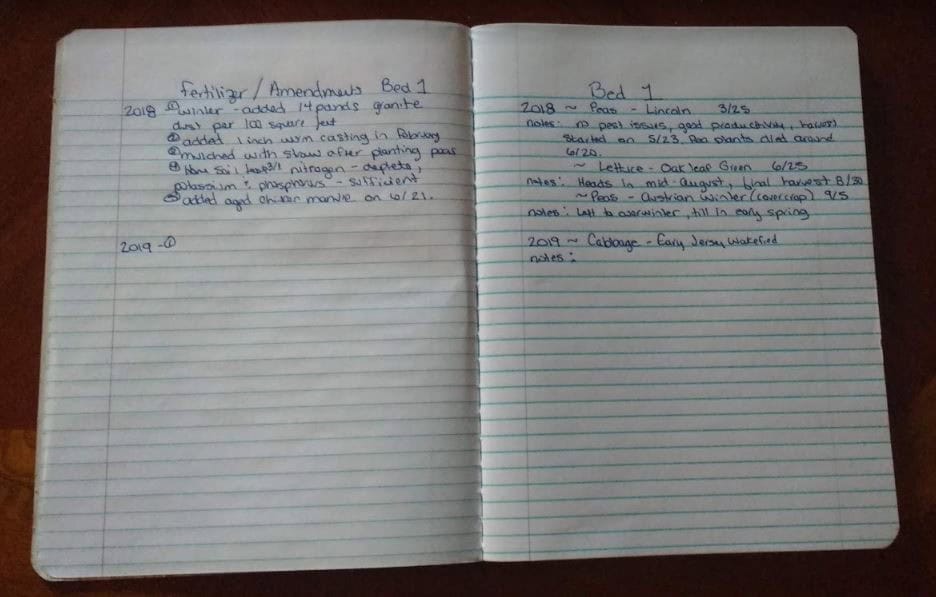 Fertilizer / Amendments Bed 1
2018 ① Winter - added 14 pounds granite
dust per 100 square feet
② added 1 inch worm casting in February
③ mulched with straw after planting peas
④ Home soil test 3/1 nitrogen - deplete,
potassium & phosphorus - sufficient
⑤ added aged chicken manure on 6/21.
2019 - ①
Bed 1
2018 ~ Peas - Lincoln 3/25
notes: no pest issues, good productivity, harvest
started on 5/23. Pea plants died around
6/20.
~ Lettice - Oak leaf Green 6/25
notes: Heads in mid-August, final harvest 8/30
~ Peas - Austrian Winter (covercrop) 9/5
notes: Left to overwinter, till in early spring
2019 ~ Cabbage - Early Jersey Wakefield
notes: